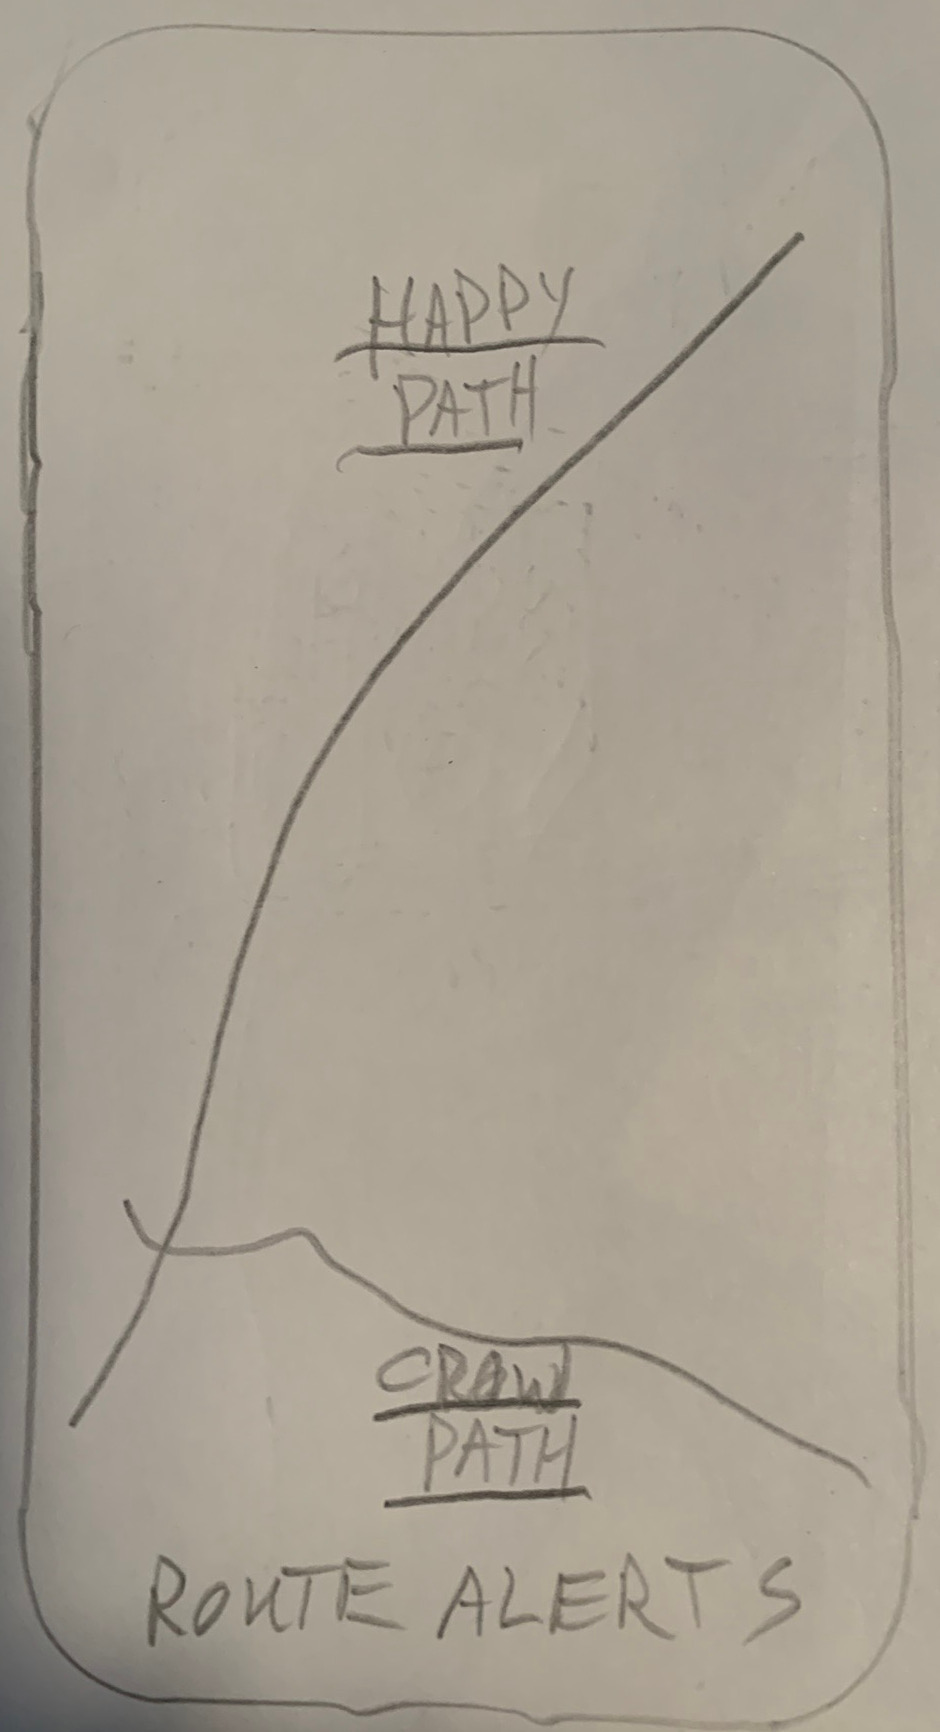 HAPPY
PATH
CROW
PATH
ROUTE ALERTS